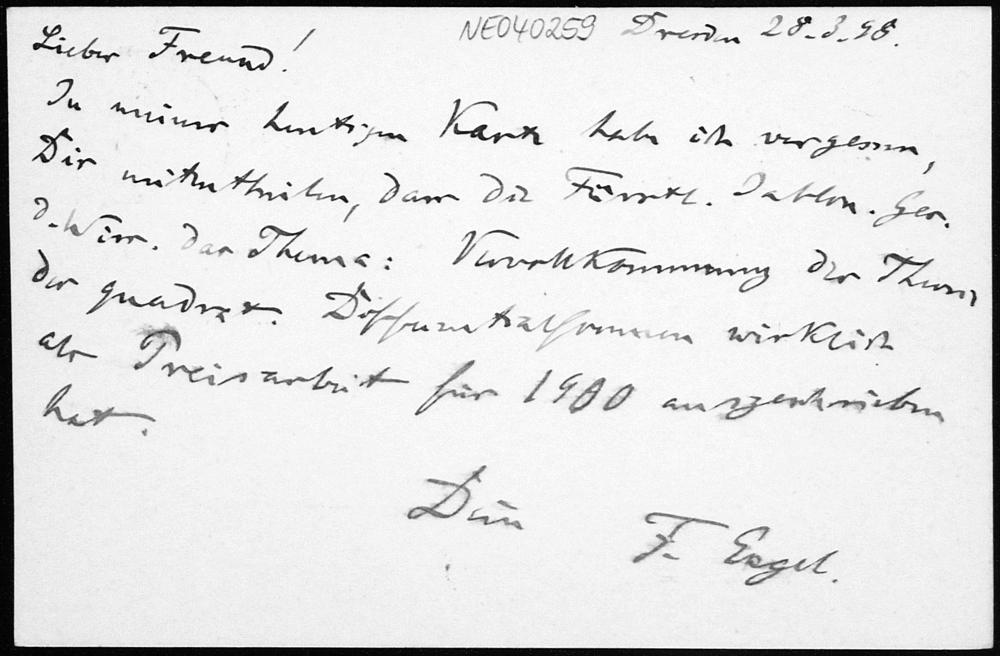 NE040259 Dresden 28.3.98.
Lieber Freund!
In meiner heutigen Karte habe ich vergessen,
Dir mitzutheilen, dass die Fürstl. Jablon. Ges.
d. Wiss. das Thema: Vervollkommnung der Theorie
der quadrat. Differentialformen wirklich
als Preisarbeit für 1900 ausgeschrieben
hat.
Dein
F. Engel.